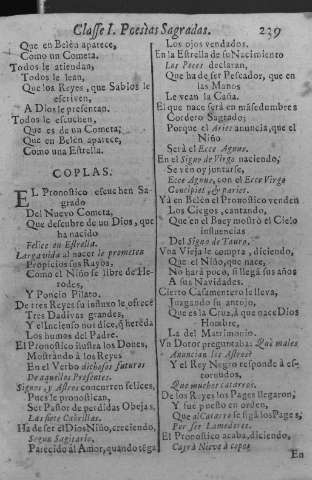 Classe I. Poesìas Sagradas. 239
Que en Belèn aparece,
Como un Cometa.
Todos le atiendan,
Todos le lean,
Que los Reyes, que Sabios le
escriven,
A Dios le presentan.
Todos le escuchen,
Que es de un Cometa,
Que en Belèn aparece,
Como una Estrella.
COPLAS.
EL Pronostico escuchen Sagrado
Del Nuevo Cometa,
Que descubre de un Dios, que
ha nacido
Felice en Estrella.
Larga vida al nacer le prometen
Propicios sus Rayos,
Como el Niño se libre de Herodes,
Y Poncio Pilato.
De tres Reyes su influxo le ofrecè
Tres Dadivas grandes,
Y el Incienso nos dice, q̃ hereda
Los humos del Padre.
El Pronostico ilustra los Dones,
Mostrando à los Reyes
En el Verbo dichosos futuros
De aquellos Presentes.
Signos, y Astros concurren felices,
Pues le pronostican,
Ser Pastor de perdidas Obejas,
Las siete Cabrillas.
Ha de ser el Dios Niño, creciendo,
Segun Sagitario,
Parecido al Amor, quando tẽga
Los ojos vendados.
En la Estrella de su Nacimiento
Los Peces declaran,
Que ha de ser Pescador, que en
las Manos
Le vean la Caña.
El que nace serà en mãsedembres
Cordero Sagrado;
Porque el Aries anuncia, que el
Niño
Serà el Ecce Agnus.
En el Signo de Virgo naciendo,
Se ven oy juntarse,
Ecce Agnus, con el Ecce Virgo
Concipiet, & pariet.
Yà en Belèn el Pronostico venden
Los Ciegos, cantando,
Que en el Buey mostrò el Cielo
influencias
Del Signo de Tauro.
Vna Vieja le compra, diciendo,
Que el Niño, que nace,
No harà poco, si llega sus años
A sus Navidades.
Cierto Casamentero le lleva,
Juzgando su antojo,
Que es la Cruz, à que nace Dios
Hombre,
La del Matrimonio.
Vn Dotor preguntaba: Què males
Anuncian los Astros?
Y el Rey Negro responde à estornudos,
Que muchos catarros.
De los Reyes los Pages llegaron;
Y fue puesto en orden,
Que al Catarro se sigã los Pages,
Por ser Lamedores.
El Pronostico acaba, diciendo,
Caerà Nieve à copos
En